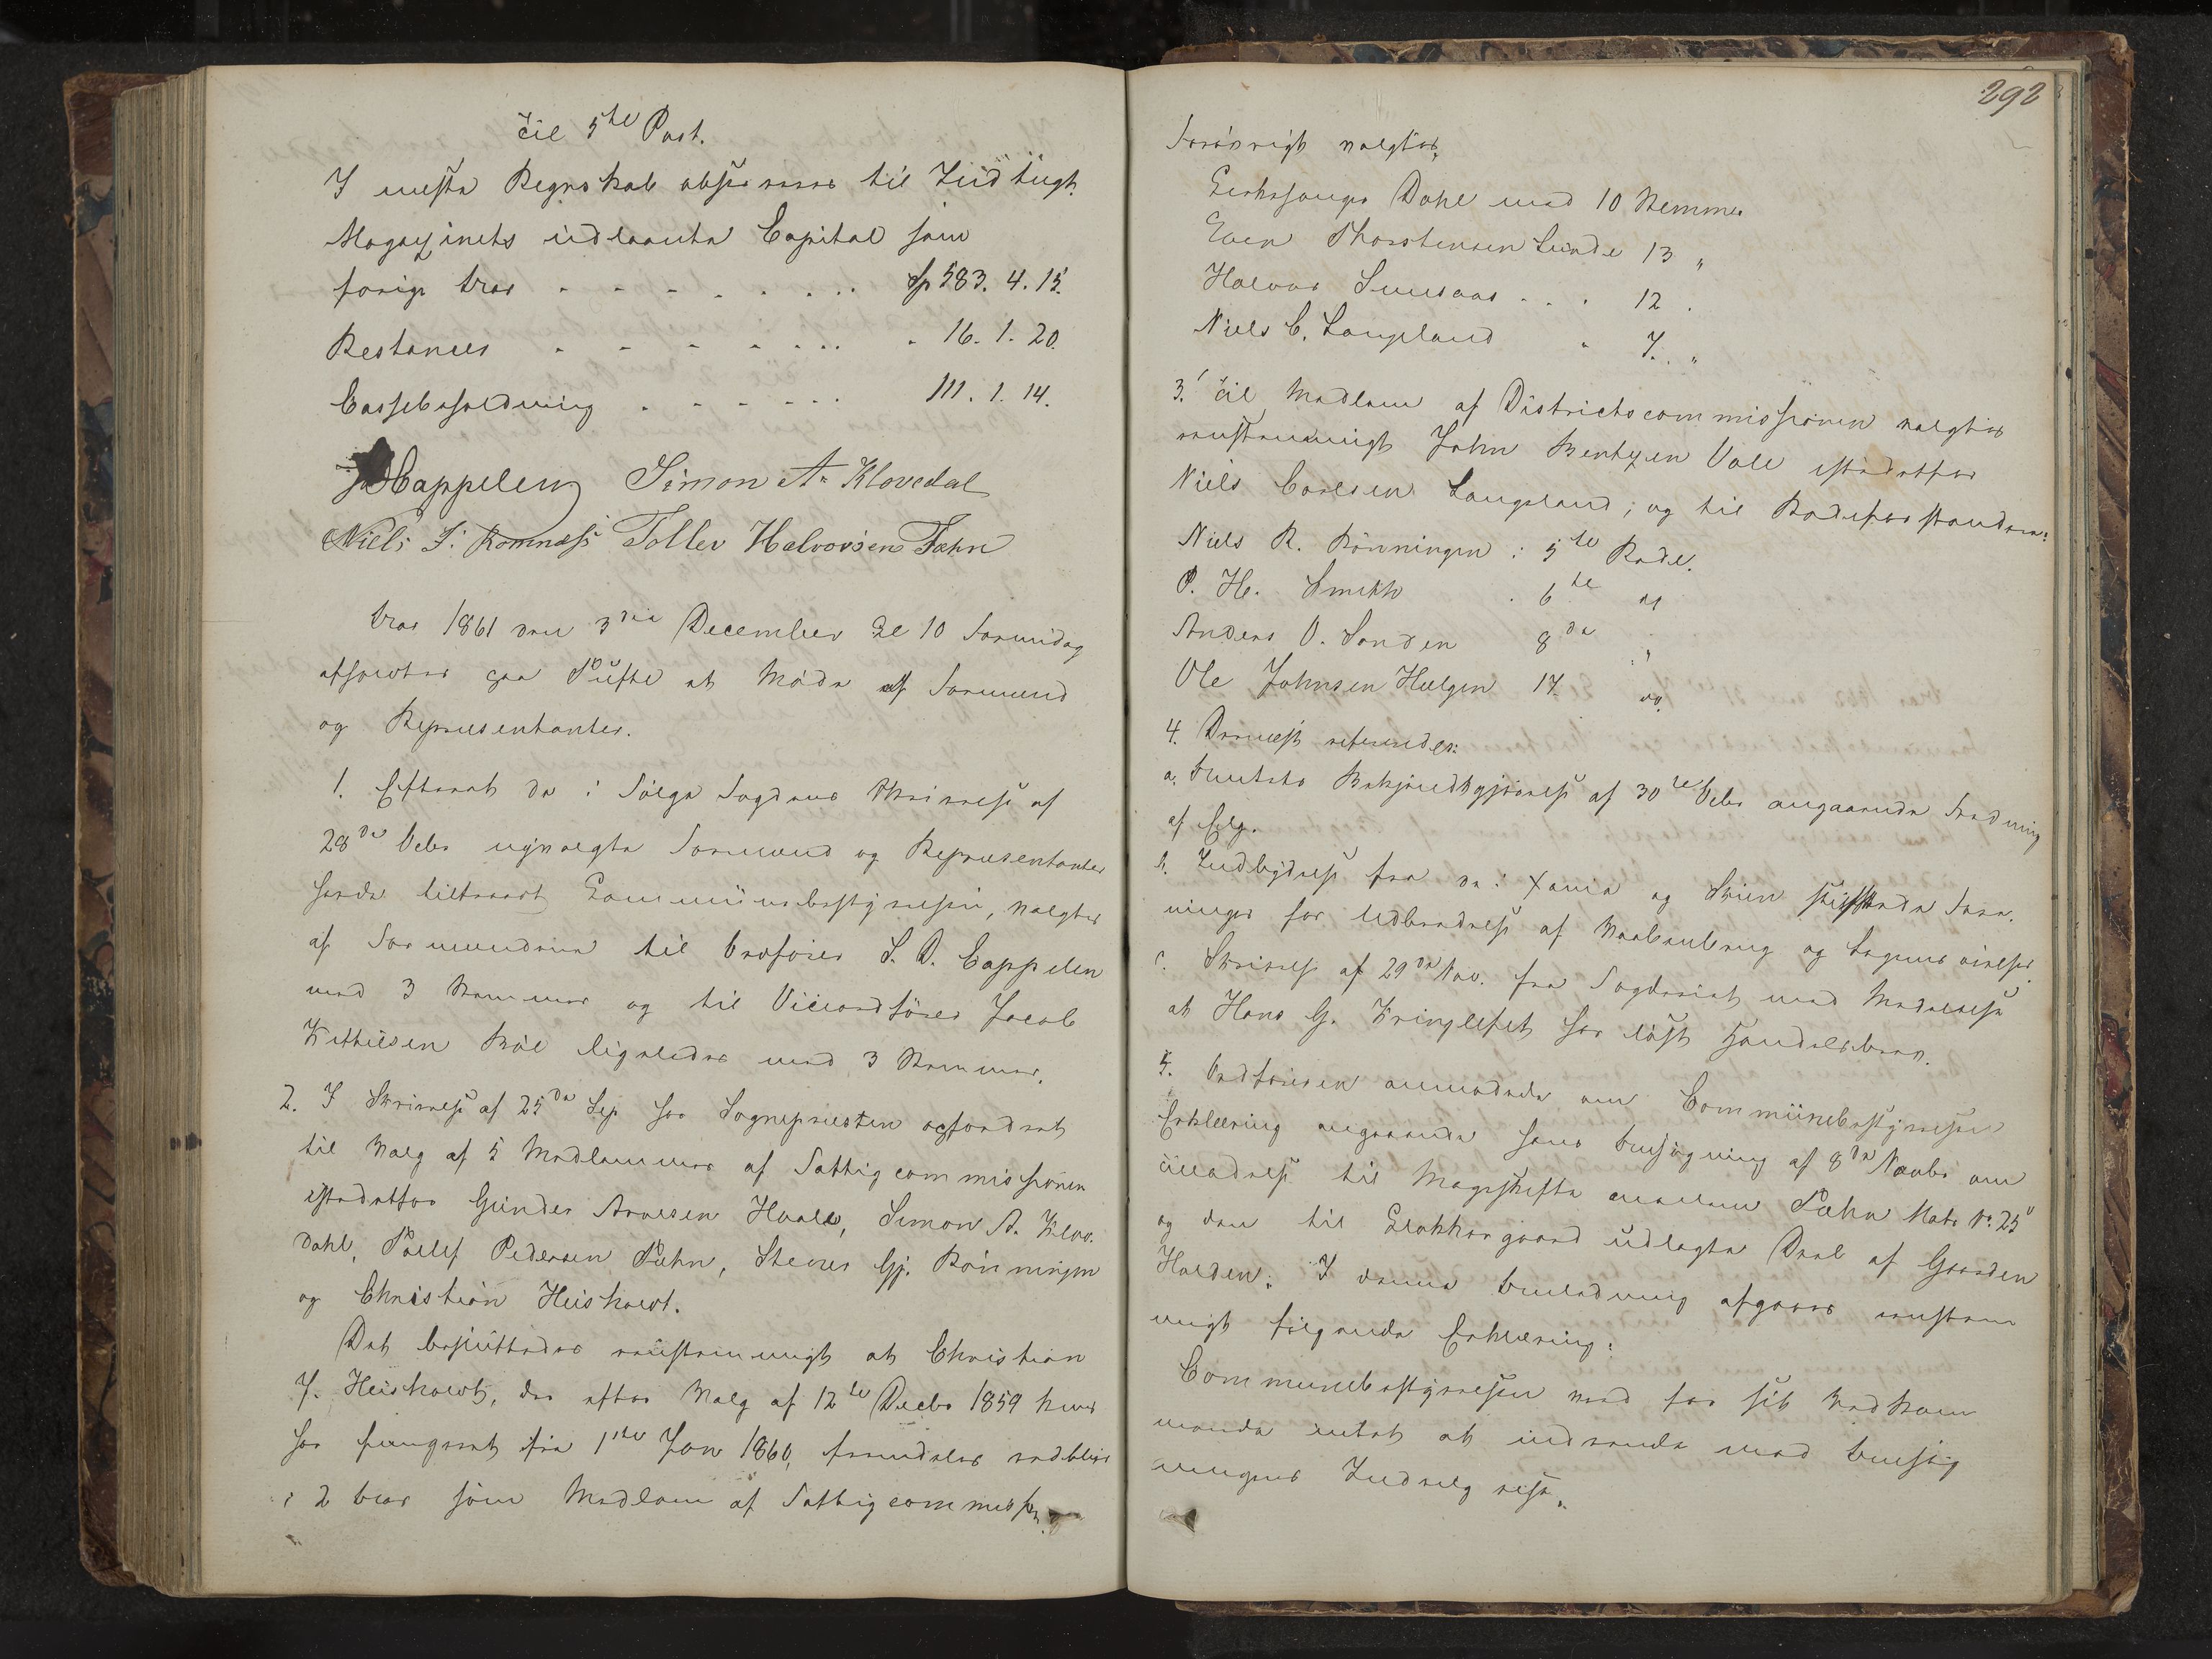 Til 5te Post.
I næste Regnskab observeres til Indtægt
Magazinets udlaante Capital som
forige Aar - - - - - - - Sp 583. 4. 15.
Restancer - - - - - - - 16. 1. 20.
Cassebeholdning - - - - - - 111. 1. 14.
Cappelen Simon A. Klovedal
Niels J. Romnæss Tollev Halvorsen Fæhn
Aar 1861 den 3die December Kl 10 Formidag
afholdtes paa Tufte et Møde af Formænd
og Repræsentanter.
1. Efterat de i Følge Fogdens Skrivelse af
28de Octbr nyvalgte Formænd og Repræsentanter
havde tiltraadt Communebestyrelsen, valgtes
af Formændene til Ordfører S. D. Cappelen
med 3 Stemmer og til Viceordfører Jacob
Kittilsen Hâe ligeledes med 3 Stemmer.
2. I Skrivelse af 25de Sep har Sognepræsten opfordret
til Valg af 5 Medlemmer af Fattigcommissionen
istedetfor Gunder Arvesen Hvale, Simon A. Klov-
dahl, Tollef Pedersen Fæhn, Stener Gj. Rønningen
og Christian Heisholdt.
Det besluttedes eenstemmigt at Christian
J. Heisholdt, der efter Valg af 12te Decbr 1859 kun
har fungeret fra 1ste Jan 1860, fremdeles vedbliver
i 2 Aar som Medlem af Fattigcommissn.
292
Forøvrigt valgtes,
Kirkesanger Dahl med 10 Stemmer
Even Thorstensen Lunde 13 "
Halvor Sunsaas . . . 12 .
Niels C. Langeland " 7. "
3. Til Medlem af Districtscommissionen valgtes
eenstemmigt John Bentzen Vale istedetfor
Niels Carlsen Langeland; og til Rodeforstandere:
Niels R. Rönningen i 5te Rode.
P. H. Smith . 6te og
Anders O. Sanden 8de "
Ole Johnsen Helgen 17. do.
4. Dernæst refereredes:
a. Amtets Bekjendtgjørelse af 30te Octbr angaaende Fredning
af Elg.
b. Indbydelse fra de i Xania og Skien stiftede Fore-
ninger for Udbredelse af Vaabenbrug og Legemsøvelser.
c. Skrivelse af 29de Nov. fra Fogderiet med Meddelelse
at Hans G. Kringlefet har løst Handelsbrev.
5. Ordføreren anmodede om Communebestyrelsens
Erklæring angaaende hans Ansøgning af 8de Novbr om
Tilladelse til Mageskifte mellem Fæhn Matr No. 25
og den til Klokkergaard udlagte Deel af Gaarden
Holden. I denne Anledning afgaves eenstem
migt følgende Erklæring:
Communebestyrelsen ved for sit Vedkom
mende intet at indvende mod Ansøg
ningens Indvilgelse.